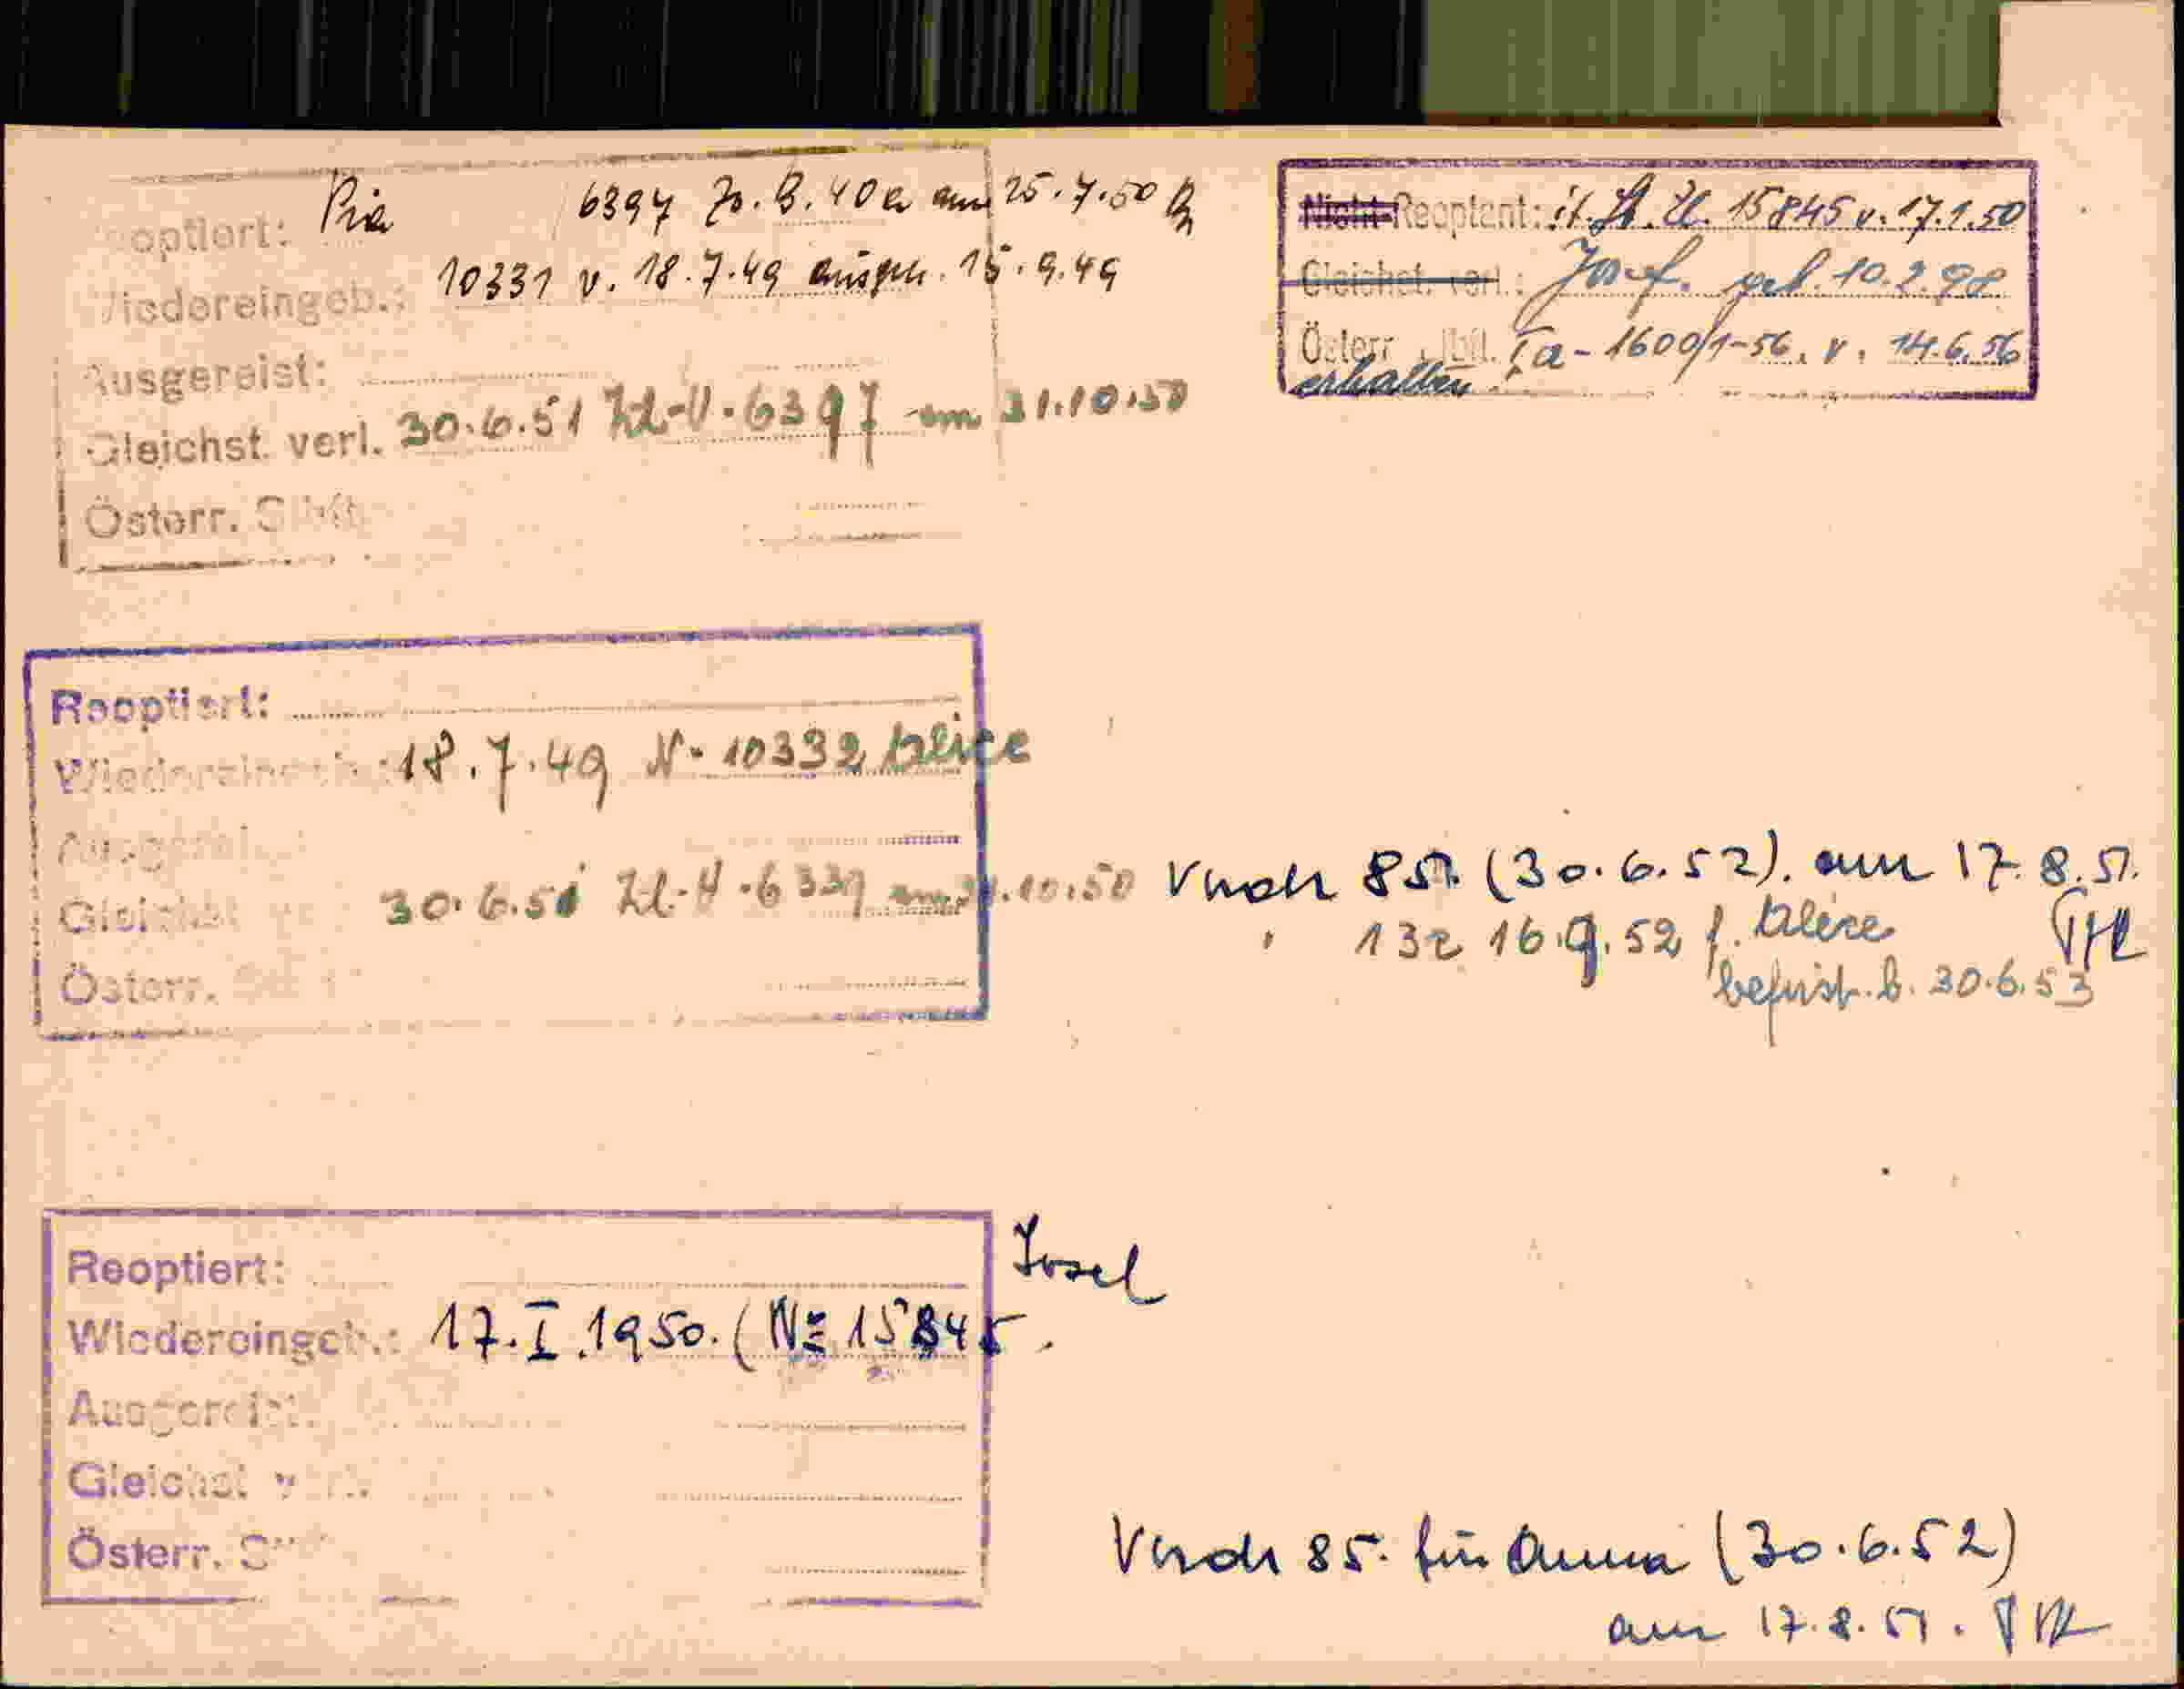 Reoptiert: Pia 6397 Jo. B. 40 a am 25.7.50
Wiedereingeb.: 10331 v. 18.7.49 ausgeh. 15.9.49
Ausgereist:
Gleichst. verl. 30.6.51 Zl-V-6397 am 31.10.50
Österr.
Nicht-Reoptant: it. St. Zl. 15845 v. 17.1.50
Gleichst. verl.: Josef. geb. 10.2.98
Österr. Ia-1600/1-56. v. 14.6.56
erhalten
Reoptiert:
Wiedereingeb.: 18.7.49 N- 10332 Alice
Ausgereist:
Gleichst. 30.6.51 Zl-V-6397 am 31.10.50
Österr.
85. (30.6.52). am 17.8.51.
" 132 16.9.52 f. Alice
befrist. b. 30.6.53
Reoptiert: Josef
Wiedereingeb.: 17.I.1950. (Nº 15845.
Ausgereist:
Gleichst. verl.
Österr.
85. für Anna (30.6.52)
am 17.8.51.